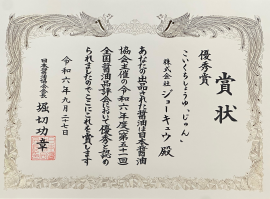 賞状
優秀賞
こいくちしょうゆ、じゅん
株式会社 ジョーキュウ 殿
あなたの出品された醤油は日本醤油
協会主催の令和六年度(第五十一回)
全国醤油品評会において優秀と認め
られましたのでここにこれを賞します
令和六年九月二十七日
日本醤油協会長
堀切功章